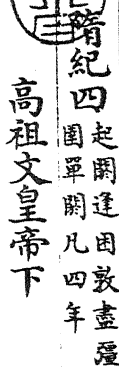 隋紀四
起閼逢困敦盡彊
圉單閼凡四年
高祖文皇帝下